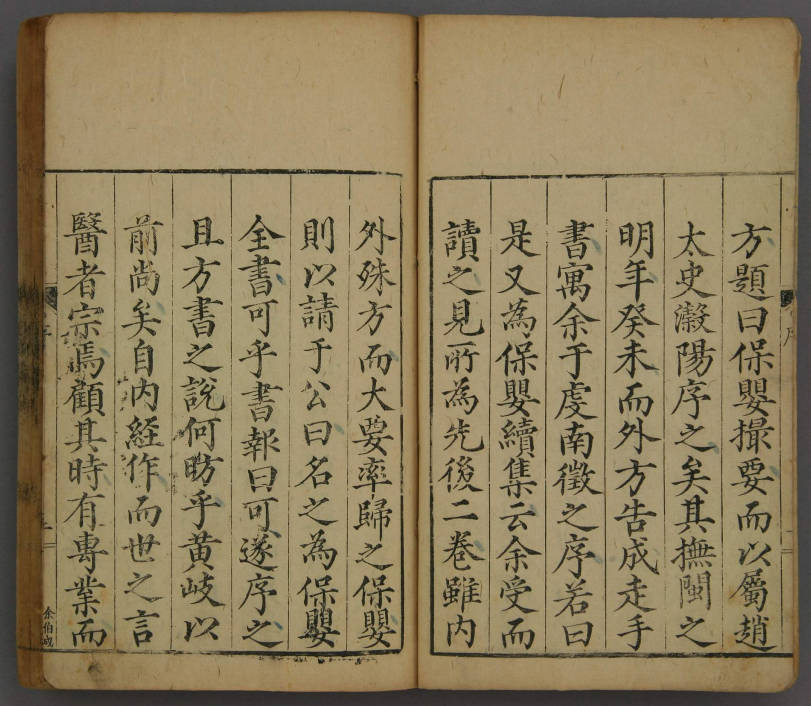 方題曰保嬰撮要而以屬趙
太史瀫陽序之矣其撫閩之
明年癸未而外方告成走手
書寓余于虔南徵之序若曰
是又為保嬰續集云余受而
讀之見所為先後二卷雖内
外殊方而大要率歸之保嬰
則以請于公曰名之為保嬰
全書可乎書報曰可遂序之
且方書之說何昉乎黄岐以
前尚矣自内経作而世之言
醫者宗焉顧其時有專業而
序
二
余伯成